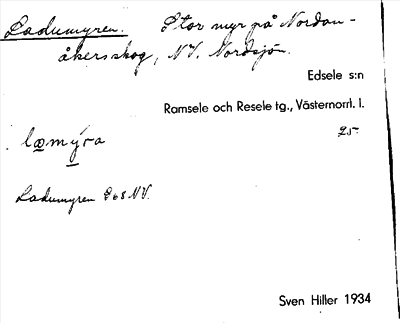 Ladumyren. Stor myr på Nordan-
åkersskog, NV. Nordsjön.
Edsele s:n
Ramsele och Resele tg., Västernorrl. l.
25.
læmýra
Ladumyren 968 NV.
Sven Hiller 1934